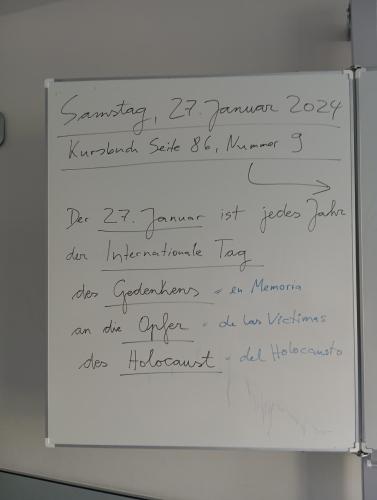 Samstag, 27. Januar 2024
Kursbuch Seite 86, Nummer 9
Der 27. Januar ist jedes Jahr
der Internationale Tag
des Gedenkens = en Memoria
an die Opfer = de las Víctimas
des Holocaust = del Holocausto